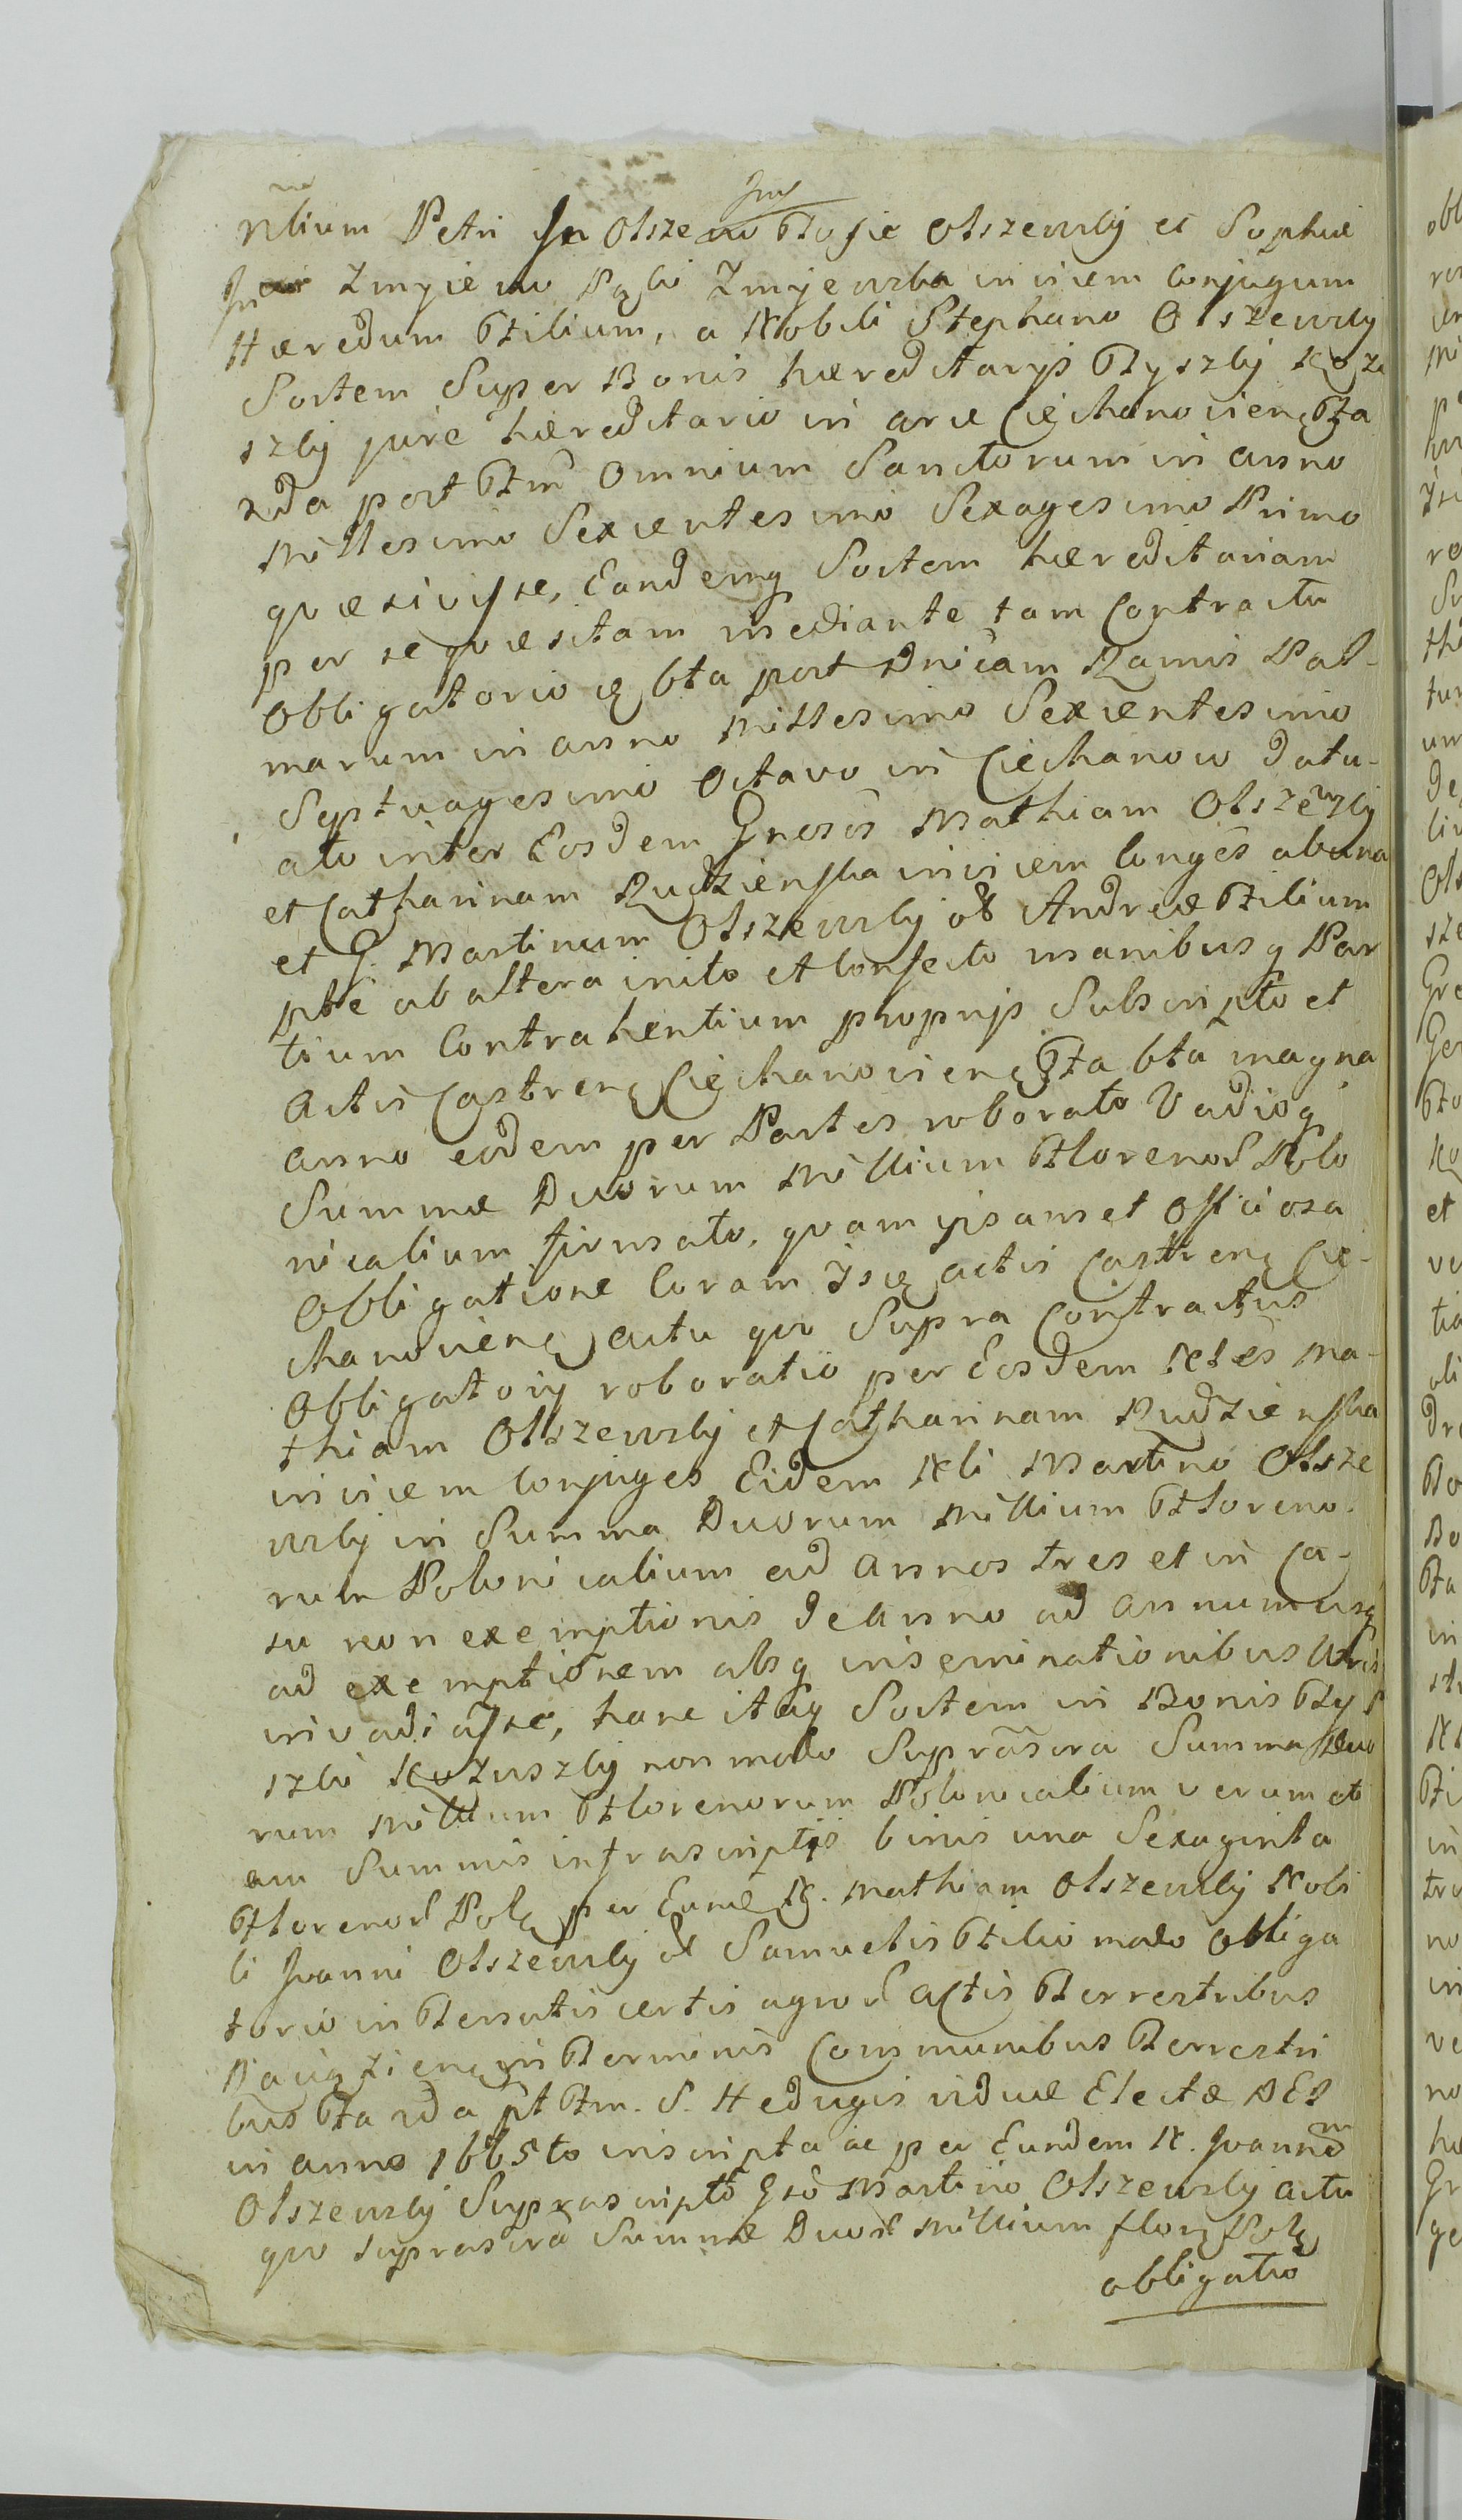 Nlium Petri in Olszewo Tosie Olszewsky et Sophiæ
In Zmyiewo Pąki Zmyewska invicem Conjugum
Hæredum Filium, a Nobili Stephano Olszewsky
Sortem Super Bonis hæreditarijs Tyszky
szky jure hæreditario in arce Ciechanovien Fa
2da post Ftm Omnium Sanctorum in anno
Millesimo Sexcentesimo Sexagesimo Primo
quæsivisse, Eandemq Sortem hæreditariam
per se quæsitam mediante tam Contractu
Obligatorio bta post Dnicam Ramis Pal-
marum in anno Millesimo Sexcentesimo
Septuagesimo Octavo in Ciechanow datu-
ato inter Eosdem Gnesos Mathiam Olszewsky
et Catharinam Rudzienska invicem Conges ab una
et G. Martinum Olszewsky ol Andreæ Filium
pte ab altera inito et Confecto manibusq Par
tium Contrahentium proprijs Subscripto et
Actis Castren Ciechanovien Fta bta magna
anno eodem per Partes roborato Vadioq
Summæ Duorum Millium Florenor Polo
nicalium firmato, quam ipsamet Officiosa
Obligatione Coram actis Castren Cie-
chanovien actu quo Supra Contractus
Obligatorij roboratio per Eosdem Nles Ma-
thiam Olszewsky et Catharinam Rudzienska
invicem Conjuges Eidem Nli Martino Olsze
wsky in Summa Duorum Millium Floreno-
rum Polonicalium ad annos tres et in Ca-
su non exemptionis de Anno ad annum usq
ad exemptionem absq inseminationibus
invadiasse, hanc itaq Sortem in Bonis Ty
szki non modo Suprascra Summa Duo
rum Millium Florenorum Polonicalium verum et
am Summis infrascriptis binis una Sexaginta
Florenor Pol per Eund N. Mathiam Olszewsky Nobi
li Joanni Olszewsky ol Samuelis Filio modo obliga
torio in Tenutis certis agror Actis Terrestribus
in Terminis Communibus Terrestri
bus Fa 2da pt Ftm. S. Hedugis viduæ Electæ DEI
in anno 1665to inscripta ac per Eundem N. Joannem
Olszewsky Suprascripto Gso Martino Olszewsky actu
quo suprascra Summæ Duor Millium flor Pol
obligatio